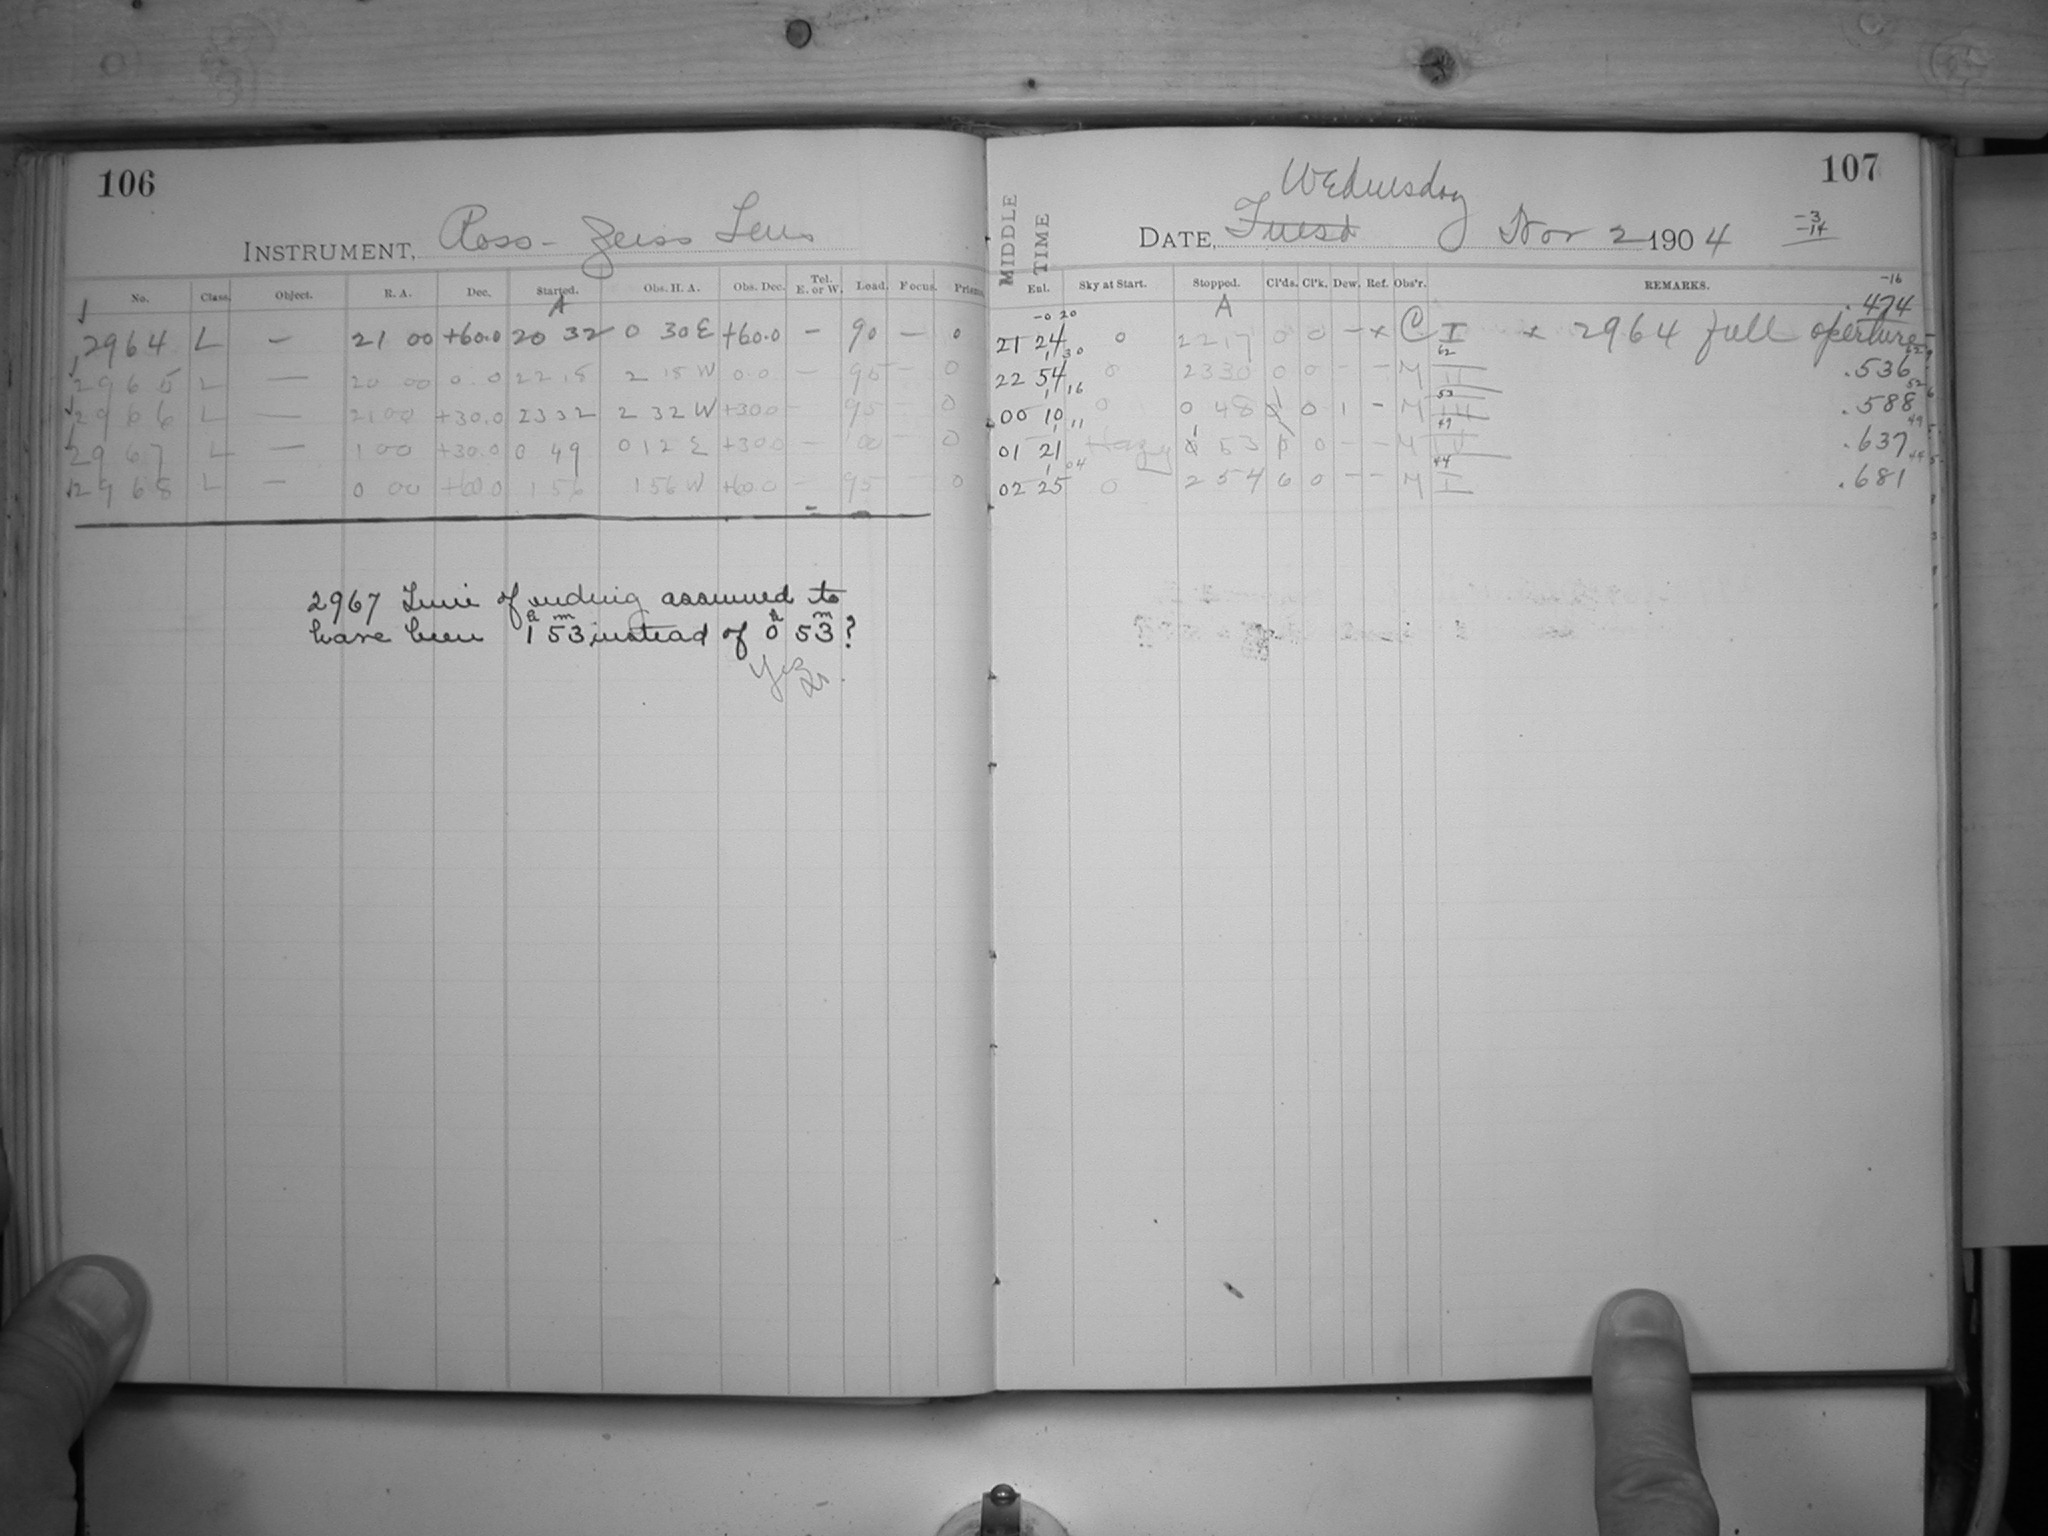 106
INSTRUMENT, Ross-Zeiss Lens
No. Class. Object. R. A. Dec. Started. Obs. H. A. Obs. Dec. Tel. E. or W. Load. Focus. Prisms.
A
2964 L — 21 00 +60.0 20 32 0 30 E +60.0 — 90 — 0
2965 L — 20 00 0.0 22 18 2 18 W 0.0 — 95 — 0
2966 L — 21 00 +30.0 23 32 2 32 W +30.0 — 95 — 0
2967 L — 1 00 +30.0 0 49 0 12 E +30.0 — 100 — 0
2968 L — 0 00 +60.0 1 56 1 56 W +60.0 — 95 — 0
2967 Time of ending assumed to
have been 1h 53m instead of 0h 53m?
Yes
107
Wednesday
DATE, Tuesd Nov 2 1904
-3
-14
MIDDLE TIME
Ent. Sky at Start. Stopped. Cl'ds. Cl'k. Dew. Ref. Obs'r. REMARKS.
-16
A .474
-0 20
21 24 0 22 17 0 0 — x C I x 2964 full aperture
1 30 62
22 54 0 23 30 0 0 — — M II .536
1 16 53 52
00 10 0 0 48 1 0 1 — M III .588
1 11 49 49
01 21 Hazy 1 53 0 — — M IV .637
1 04 44 44
02 25 0 2 54 0 0 — — M I .681